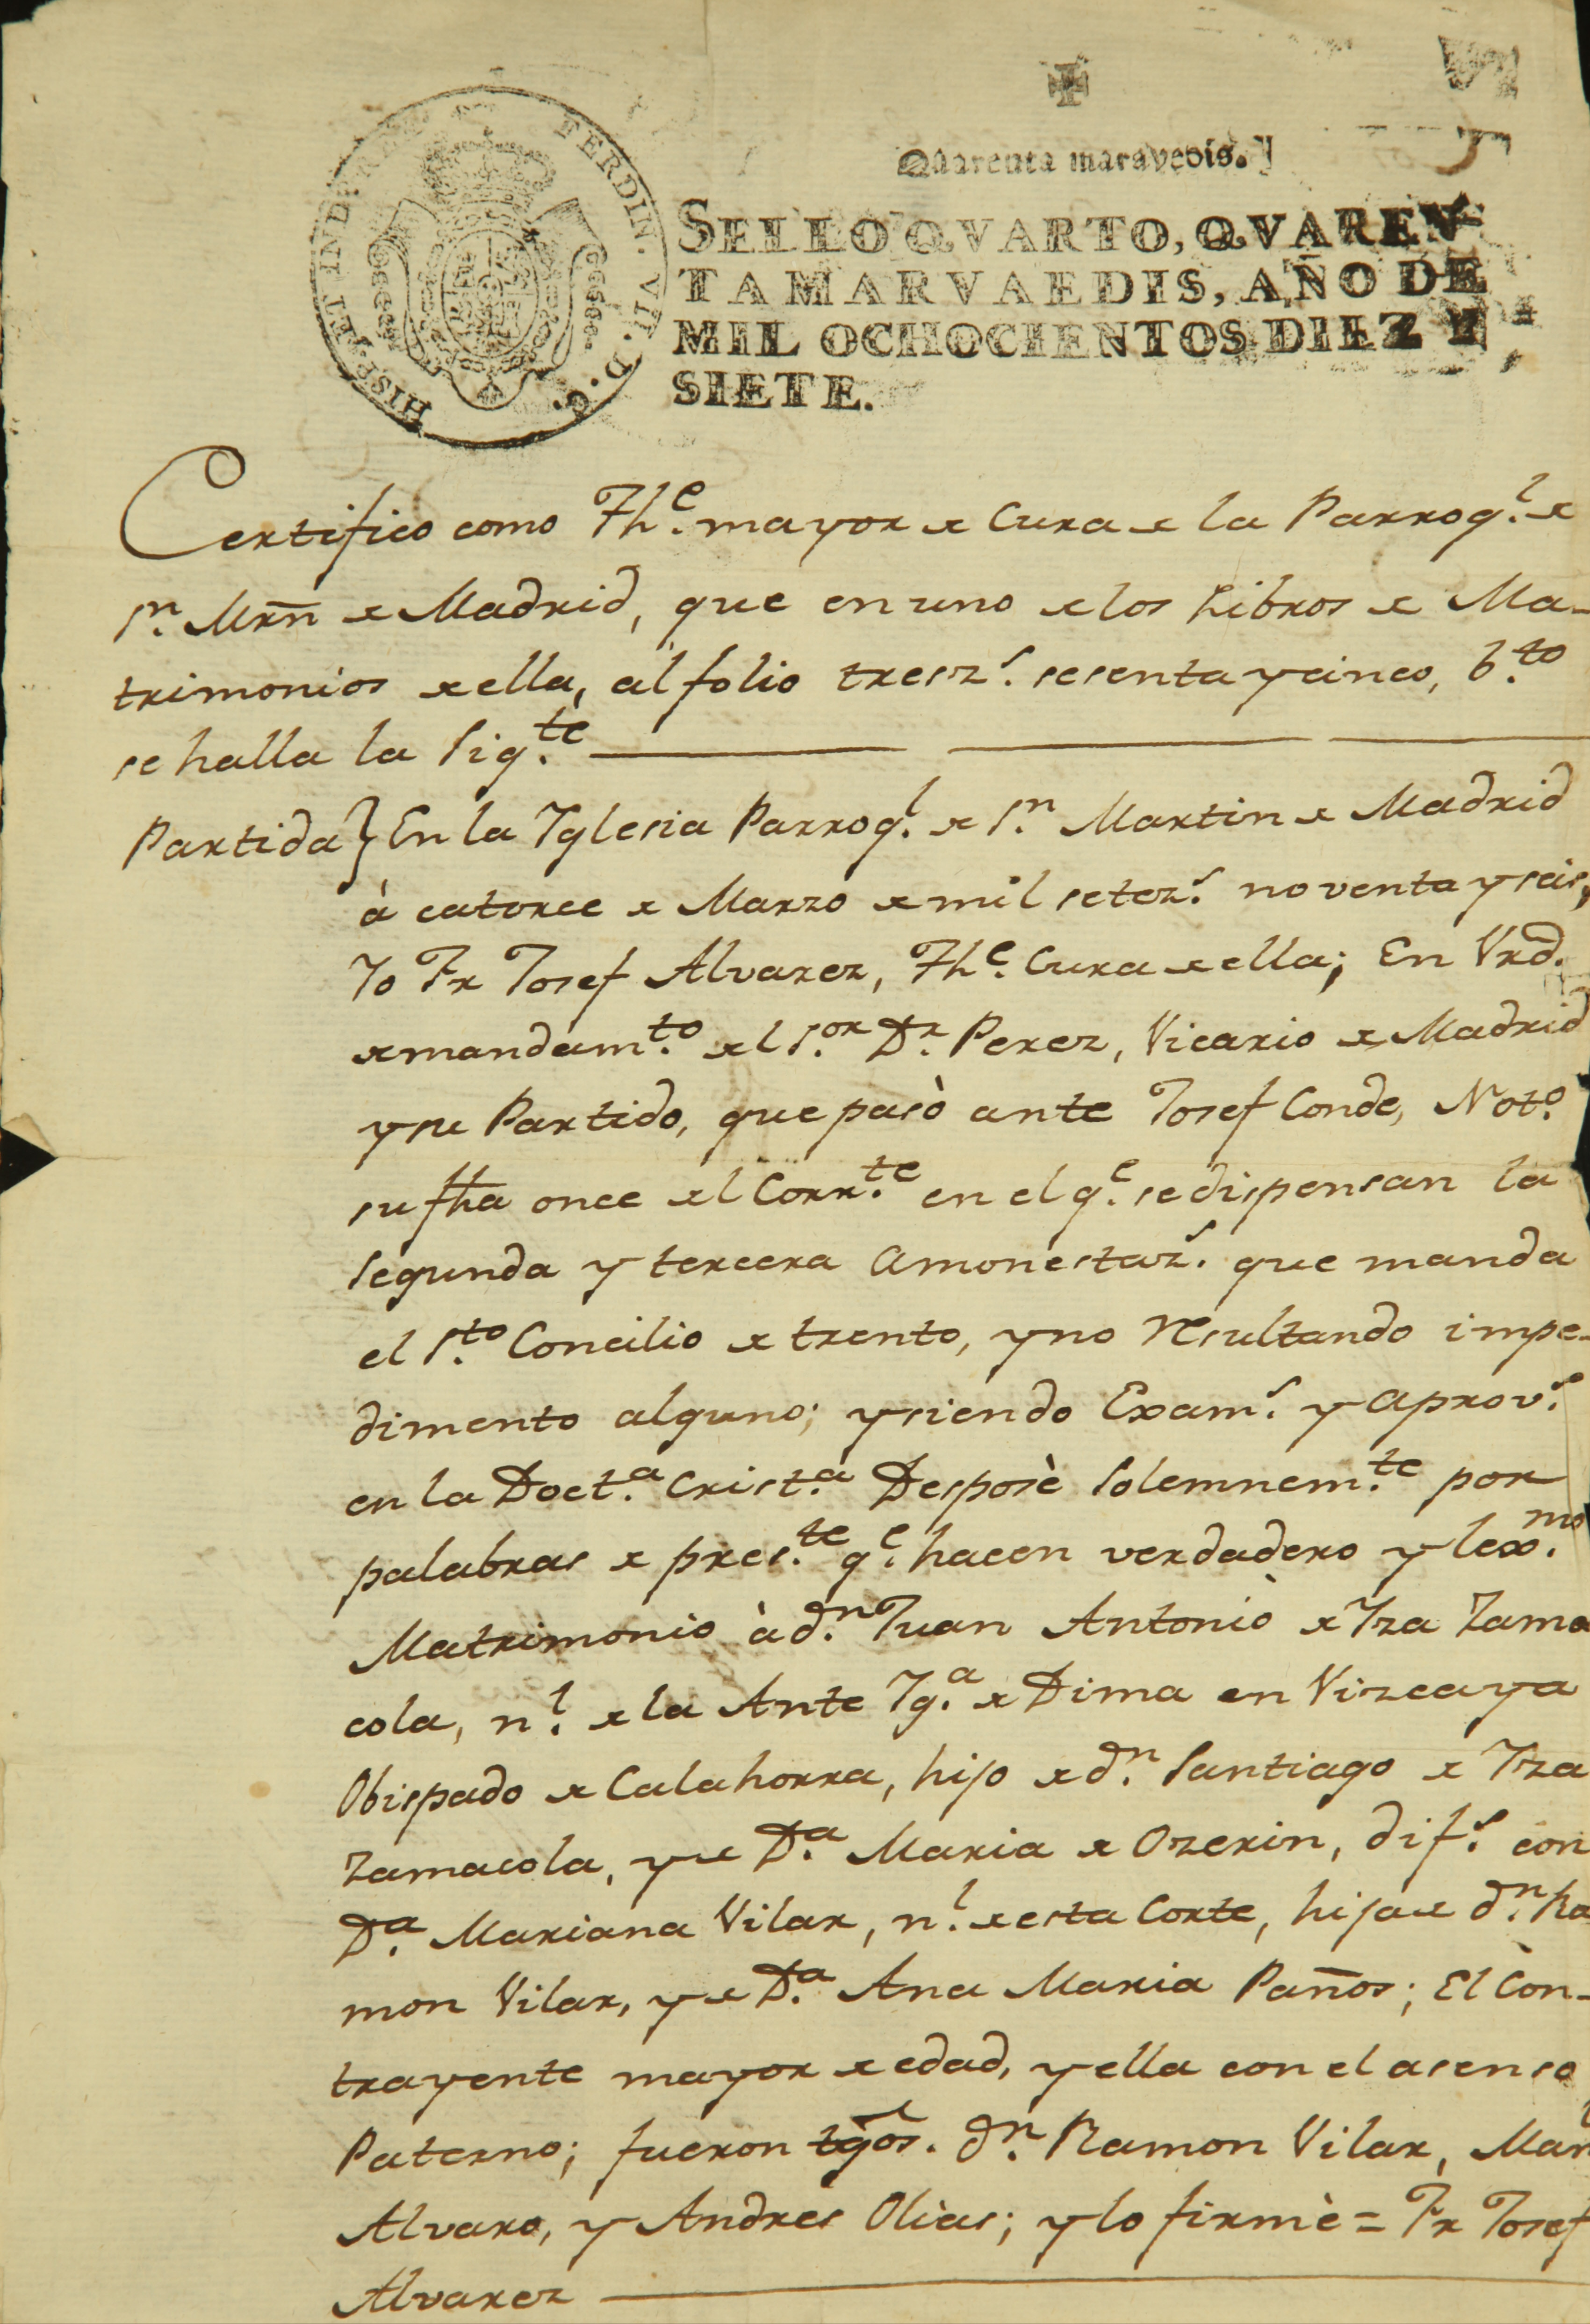 Quarenta maravedis.
HISP. ET IND. REX. FERDIN. VII. D. G.
SELLO QVARTO, QVAREN
TA MARVAEDIS, AÑO DE
MIL OCHOCIENTOS DIEZ Y
SIETE.
Certifico como Th.e mayor de Cura de la Parroq.l de
S.n Mrñ de Madrid, que en uno de los Libros de Ma-
trimonios de ella, al folio tresz.s sesenta y cinco, b.to
se halla la Sig.te
Partida} En la Yglesia Parroq.l de S.n Martin de Madrid
à catorce de Marzo de mil setez.s noventa y seis,
Yo Fr Josef Alvarez, Th.e Cura de ella; En Vrd.
de mandam.to del S.or D.r Perez, Vicario de Madrid
y su Partido, que pasò ante Josef Conde, Not.o
su fha once del Corr.te en el q.e se dispensan la
segunda y tercera Amonestaz.s que manda
el S.to Concilio de trento, y no Resultando impe-
dimento alguno; y siendo Exam.s y aprov.s
en la Doct.a Crist.a Desposè Solemnem.te por
palabras de pres.te q.e hacen verdadero y lex.mo
Matrimonio à d.n Juan Antonio de Yza Zama
cola, n.l de la Ante Yg.a de Dima en Vizcaya
Obispado de Calahorra, hijo de d.n Santiago de Yza
Zamacola, y de D.a Maria de Ozerin, dif.s con
D.a Mariana Vilar, n.l de esta Corte, hija de d.n Ra
mon Vilar, y de D.a Ana Maria Paños; El Con-
trayente mayor de edad, y ella con el asenso
Paterno; fueron tgos. d.n Ramon Vilar, Man.l
Alvaro, y Andres Olias; y lo firmè = Fr Josef
Alvarez